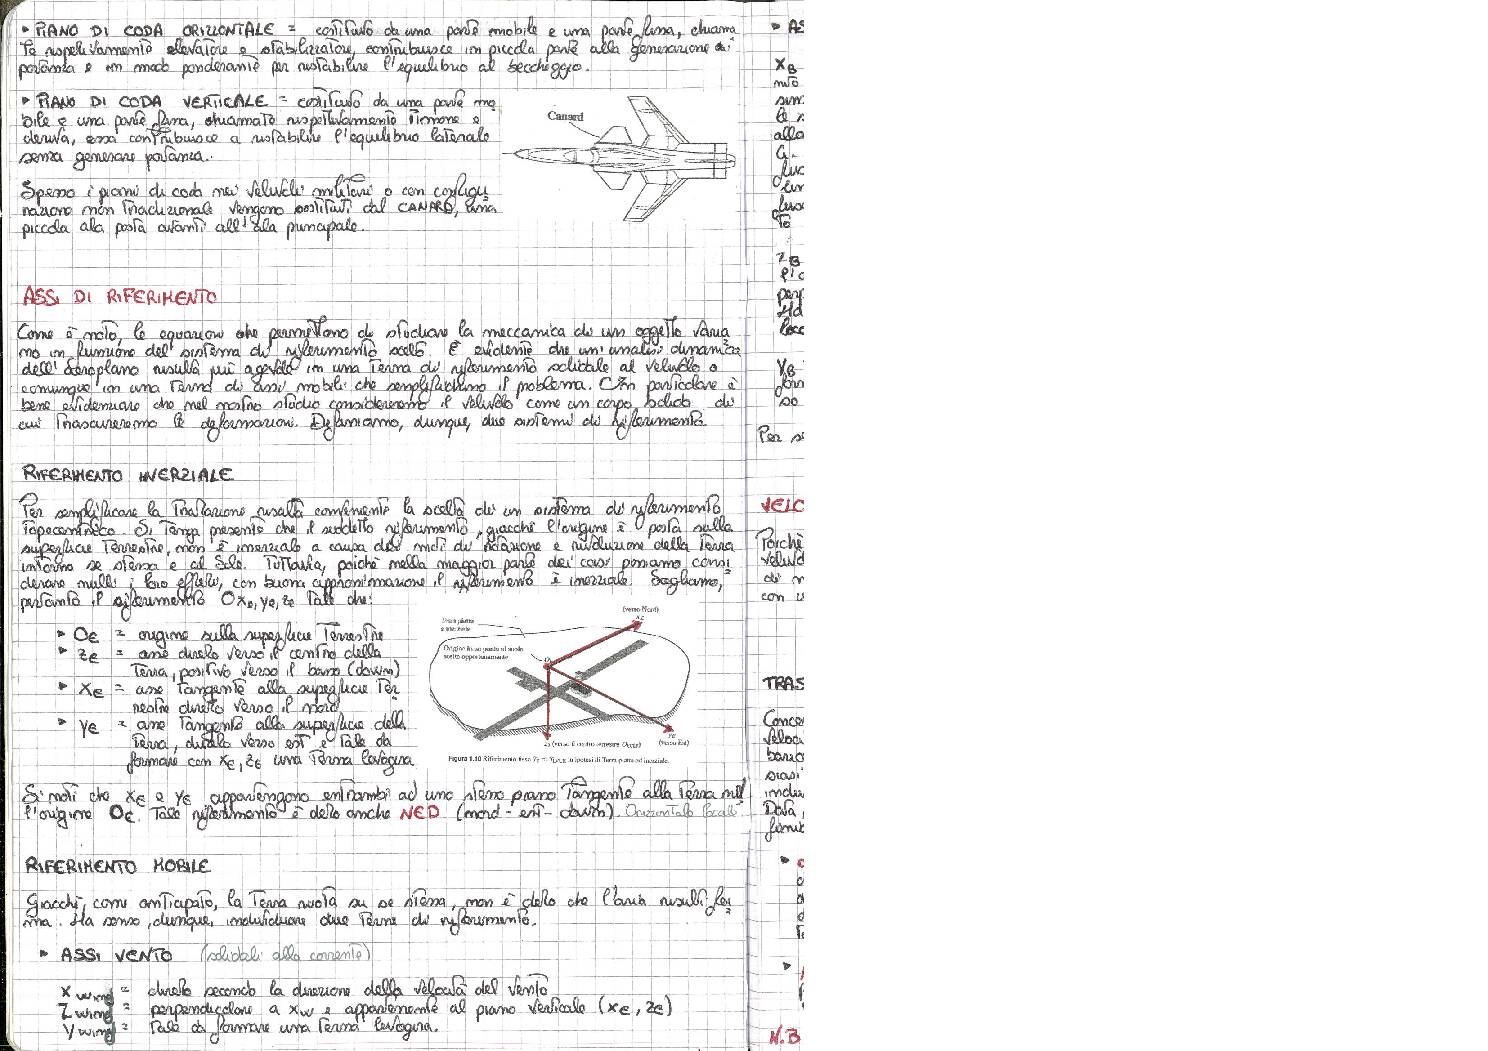 ▸ PIANO DI CODA ORIZZONTALE = costituito da una parte mobile e una parte fissa, chiama
te rispettivamente elevatore e stabilizzatore, contribuisce in piccola parte alla generazione di
portanza e in modo ponderante per ristabilire l'equilibrio al beccheggio.
▸ PIANO DI CODA VERTICALE = costituito da una parte mo
bile e una parte fissa, chiamate rispettivamente timone e
deriva, essa contribuisce a ristabilire l'equilibrio laterale
senza generare portanza.
Canard
Spesso i piani di coda nei velivoli militari o con configu
razione non tradizionale vengono sostituiti dal CANARD, una
piccola ala posta avanti all'ala principale.
ASSI DI RIFERIMENTO
Come è noto, le equazioni che permettono di studiare la meccanica di un oggetto varia
no in funzione del sistema di riferimento scelto. È evidente che un'analisi dinamica
dell'aeroplano risulta più agevole in una terna di riferimento solidale al velivolo o
comunque in una terna di assi mobili che semplifichino il problema. In particolare è
bene evidenziare che nel nostro studio considereremo il velivolo come un corpo solido di
cui trascureremo le deformazioni. Definiamo, dunque, due sistemi di riferimento.
RIFERIMENTO INERZIALE
Per semplificare la trattazione risulta conveniente la scelta di un sistema di riferimento
topocentrico. Si tenga presente che il suddetto riferimento, giacché l'origine è posta sulla
superficie terrestre, non è inerziale a causa dei moti di rotazione e rivoluzione della Terra
intorno se stessa e al Sole. Tuttavia, poiché nella maggior parte dei casi possiamo consi
derare nulli i loro effetti, con buona approssimazione il riferimento è inerziale. Scegliamo,
pertanto il riferimento Oxe, ye, ze tale che:
▸ Oe = origine sulla superficie terrestre
▸ ze = asse diretto verso il centro della
Terra, positivo verso il basso (down)
▸ xe = asse tangente alla superficie ter
restre diretto verso il nord
▸ ye = asse tangente alla superficie della
Terra, diretto verso est e tale da
formare con xe, ze una terna levogira
(verso Nord)
xE
Terra piatta
e inerziale
Origine fissa posta al suolo
scelto opportunamente
zE (verso il centro terrestre OECEF)
yE
(verso Est)
Figura 1.10 Riferimento fisso in ipotesi di Terra piatta ed inerziale.
Si noti che xe e ye appartengono entrambi ad uno stesso piano tangente alla Terra nel
l'origine Oe. Tale riferimento è detto anche NED (nord - est - down). Orizzontale locale
RIFERIMENTO MOBILE
Giacché, come anticipato, la Terra ruota su se stessa, non è detto che l'aria risulti fer
ma. Ha senso, dunque, individuare due terne di riferimento.
▸ ASSI VENTO (solidali alla corrente)
X wing = diretto secondo la direzione della velocità del vento
Z wing = perpendicolare a xw e appartenente al piano verticale (xe, ze)
Y wing = tale da formare una terna levogira.
XB
ZB
YB
Per
N.B